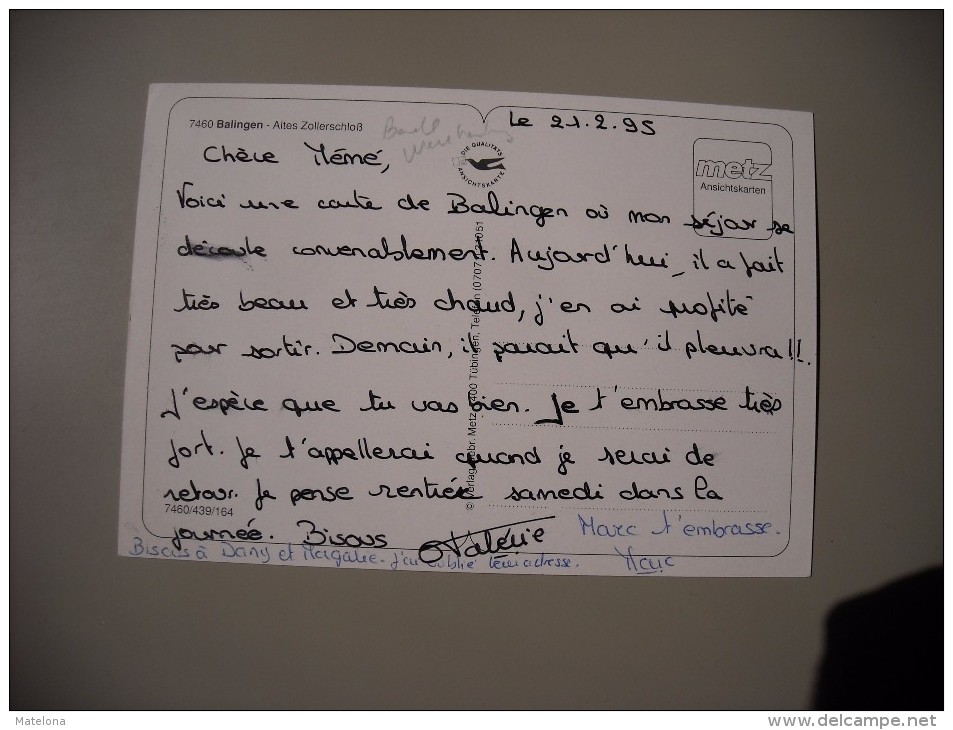 7460 Balingen - Altes Zollerschloß
Le 21.2.95
DIE QUALITÄTS ANSICHTSKARTE
metz
Ansichtskarten
Chère Mémé,
Voici une carte de Balingen où mon séjour se
déroule convenablement. Aujourd'hui, il a fait
très beau et très chaud, j'en ai profité
pour sortir. Demain, il parait qu'il pleuvra!!.
J'espère que tu vas bien. Je t'embrasse très
fort. Je t'appellerai quand je serai de
retour. Je pense rentrée samedi dans la
journée. Bisous Valérie
7460/439/164
Marc t'embrasse.
Marc
Bisous à Dany et Magalie. J'ai oublié leur adresse.
© Verlag Gebr. Metz, 7400 Tübingen, Telefon (0707
Matelona
www.delcampe.net